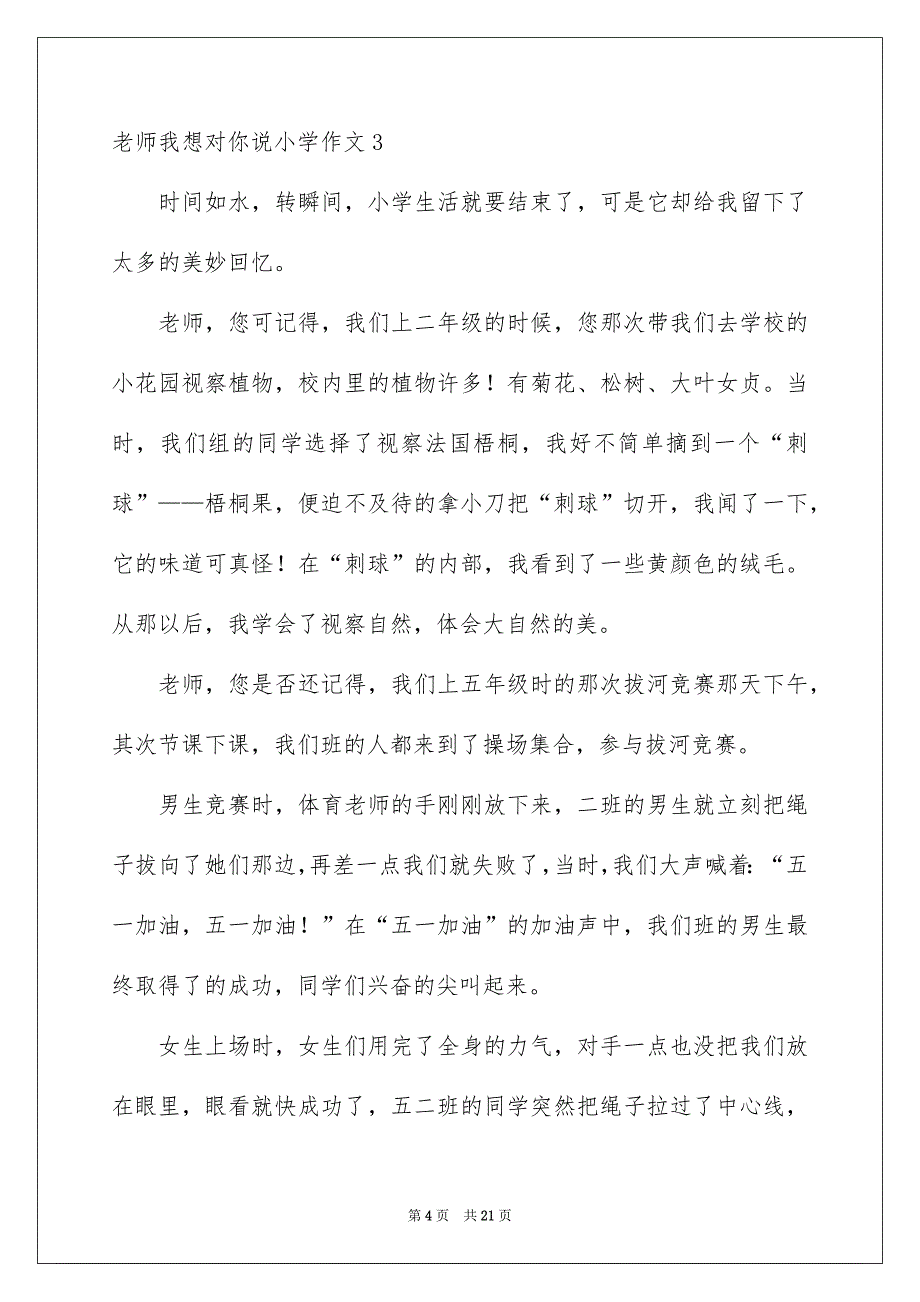 老师我想对你说小学作文3
时间如水，转瞬间，小学生活就要结束了，可是它却给我留下了
太多的美妙回忆。
老师，您可记得，我们上二年级的时候，您那次带我们去学校的
小花园视察植物，校内里的植物许多！有菊花、松树、大叶女贞。当
时，我们组的同学选择了视察法国梧桐，我好不简单摘到一个“刺
球”——梧桐果，便迫不及待的拿小刀把“刺球”切开，我闻了一下，
它的味道可真怪！在“刺球”的内部，我看到了一些黄颜色的绒毛。
从那以后，我学会了视察自然，体会大自然的美。
老师，您是否还记得，我们上五年级时的那次拔河竞赛那天下午，
其次节课下课，我们班的人都来到了操场集合，参与拔河竞赛。
男生竞赛时，体育老师的手刚刚放下来，二班的男生就立刻把绳
子拔向了她们那边，再差一点我们就失败了，当时，我们大声喊着：“五
一加油，五一加油！”在“五一加油”的加油声中，我们班的男生最
终取得了的成功，同学们兴奋的尖叫起来。
女生上场时，女生们用完了全身的力气，对手一点也没把我们放
在眼里，眼看就快成功了，五二班的同学突然把绳子拉过了中心线，
第4页 共21页